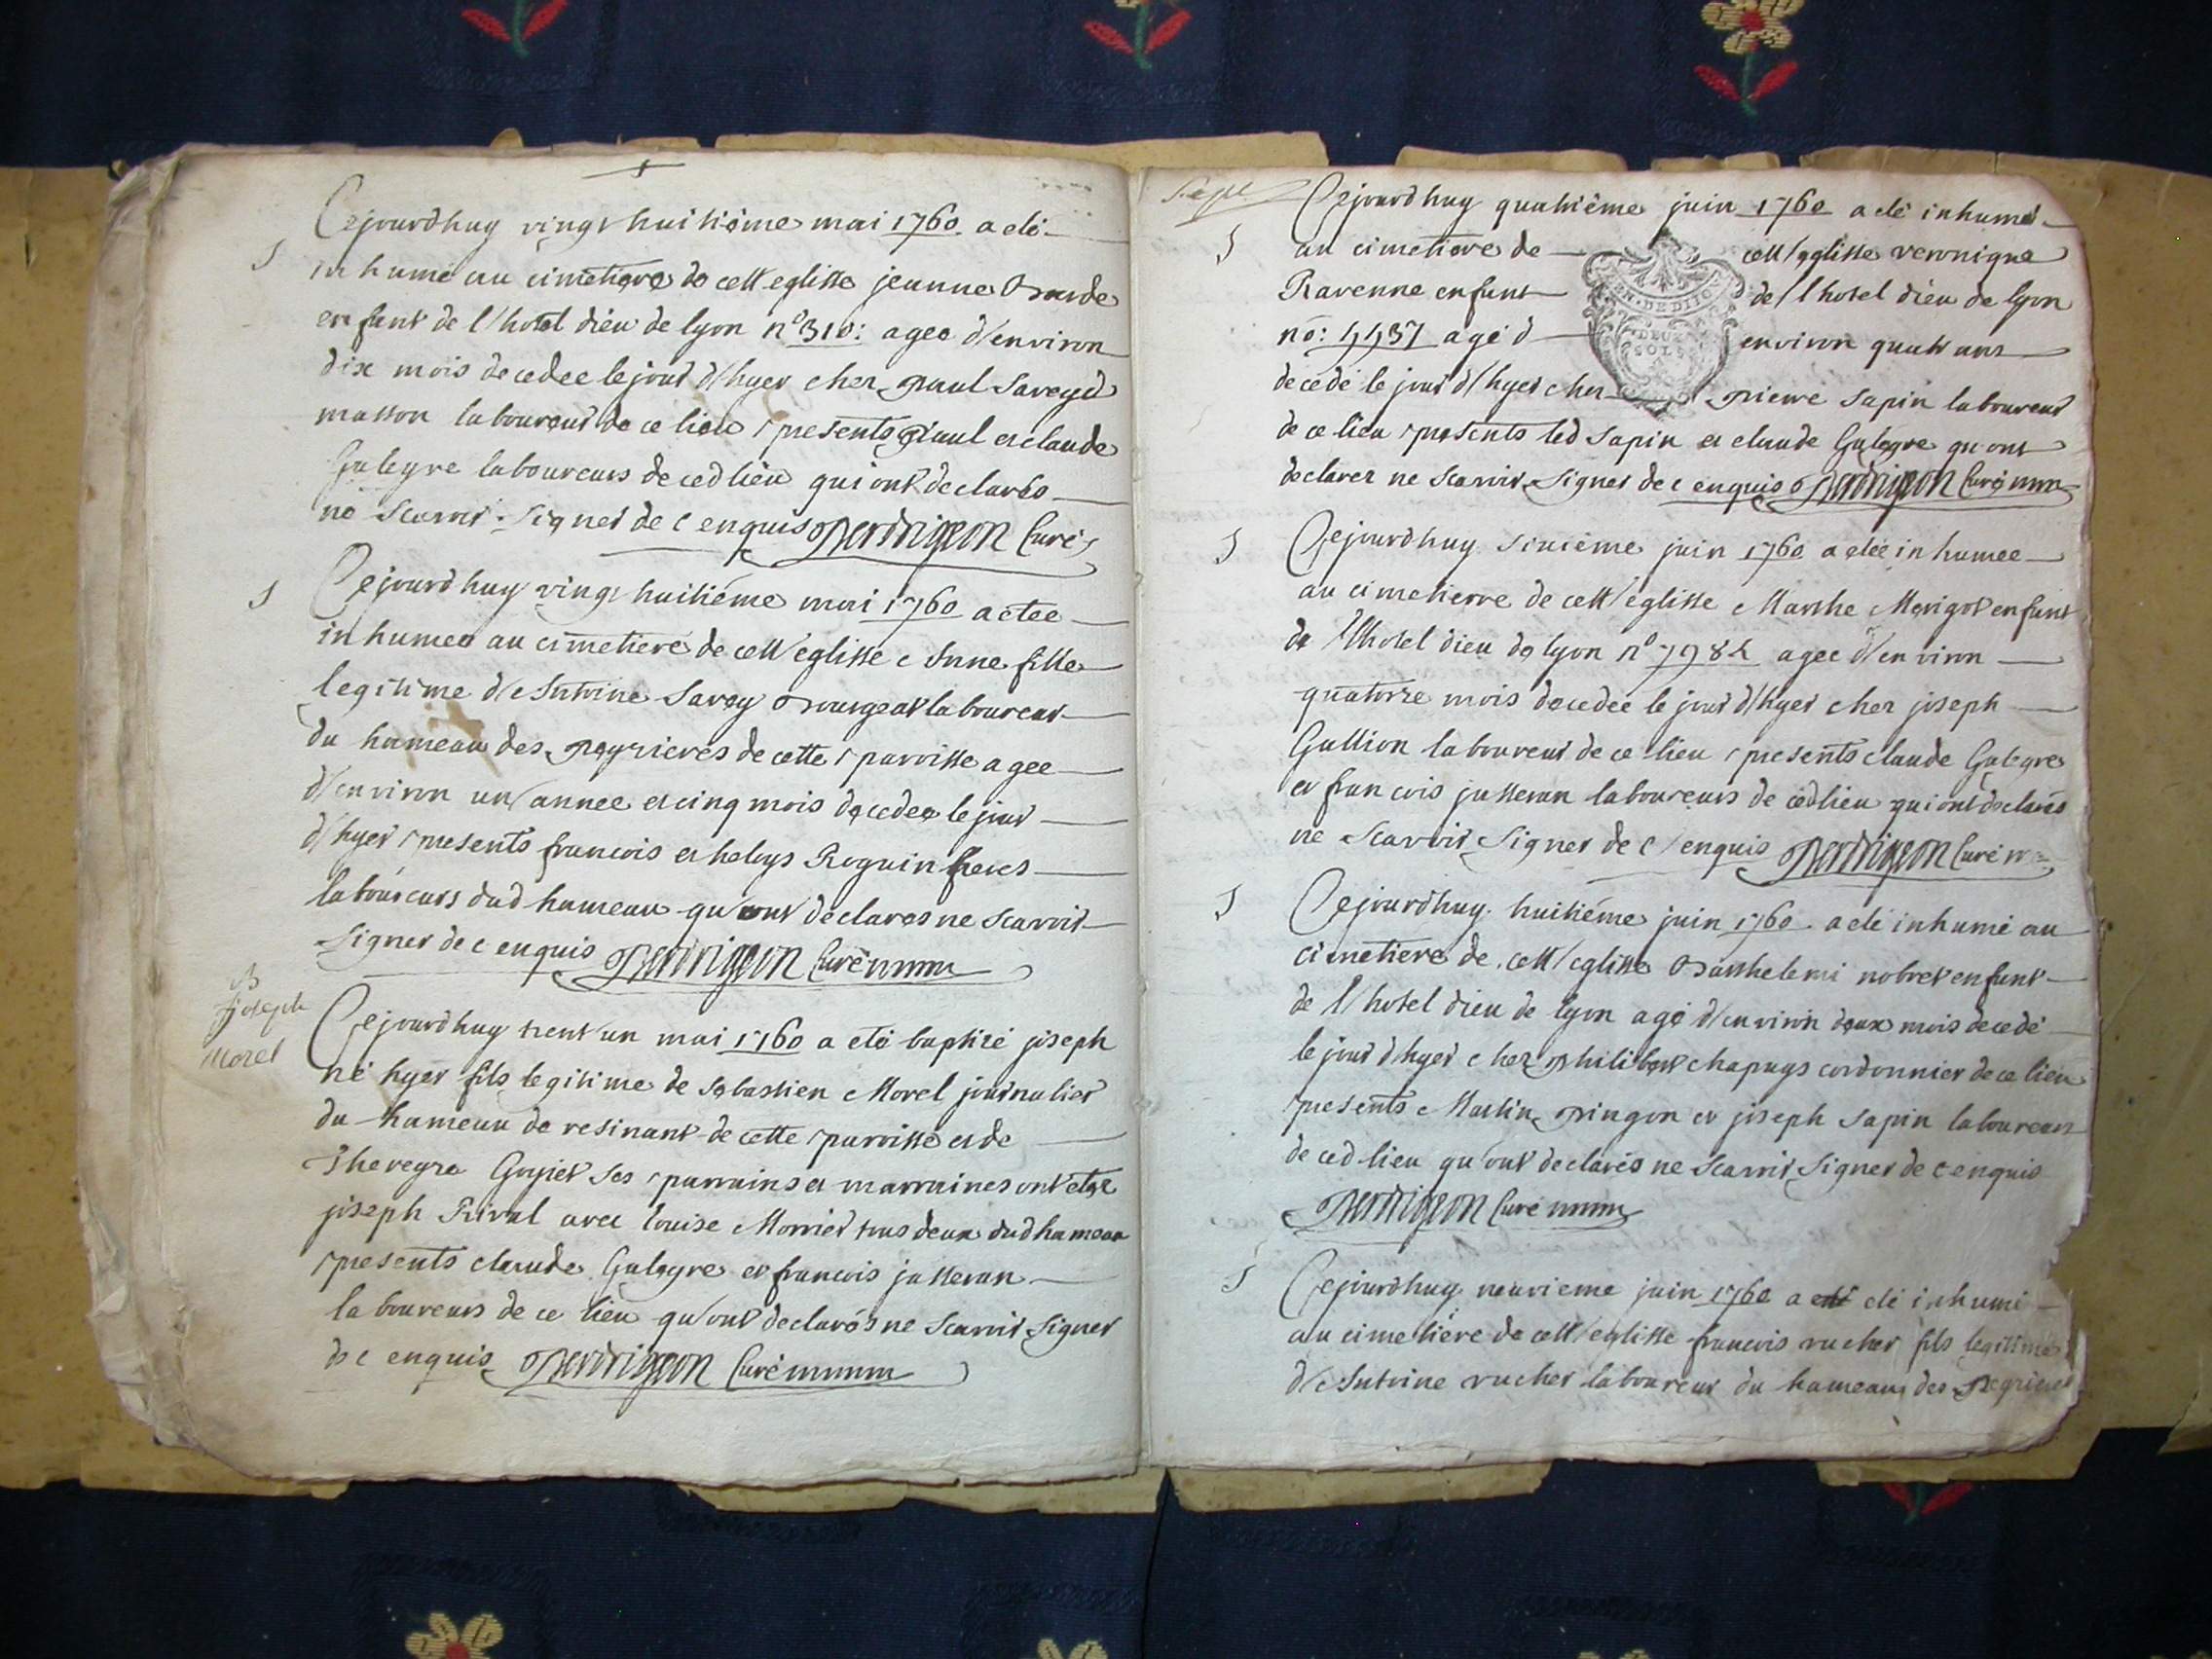 Cejourdhuy vingt huitiéme mai 1760 a eté
S
inhumé au cimetiere de cett eglisse jeanne
enfant de l'hotel dieu de lyon n° 310: agee d'environ
dix mois decedee le jour d'hyer chez paul Saveyd
masson laboureur de ce lieu presents paul et claude
Galeyre laboureurs de ced lieu qui ont declarés
ne Scavoir signer de c enquis Perdrigeon Curé
S
Cejourdhuy vingt huitiéme mai 1760 a etee
inhumee au cimetiere de cett' eglisse Anne fille
legitime d'Antoine Savoy Bourgeat laboureur
du hameau des de cette parroisse agee
d'environ un' annee et cinq mois decedee le jour
d'hyer presents francois et Roguin freres
laboureurs dud hameau qu'ont declares ne Scavoir
signer de c enquis Perdrigeon Curé
B
joseph
Morel
Cejourdhuy trent' un mai 1760 a eté baptizé joseph
né hyer fils legitime de Sebastien Morel journalier
du hameau de resinant de cette parroisse et de
Goyiet Ses parrains et marraines ont etee
joseph Rival avec louise Morrier tous deux dud hameau
presents claude Galeyre et francois jasseran
laboureurs de ce lieu qu'ont declarés ne Scavoir Signer
de c enquis Perdrigeon Curé
Sept
Cejourdhuy quatriéme juin 1760 a eté inhumé
S
au cimetiere de cett' eglisse veronique
Ravenne enfant de l'hotel dieu de lyon
GEN. DE DIJON
no: 4437 agé d environ quatr' ans
DEUX
SOLS
decedé le jour d'hyer chez pierre Sapin laboureur
de ce lieu presents led Sapin et claude Galeyre qu'ont
declarer ne Scavoir Signer de c enquis Perdrigeon Curé
S
Cejourdhuy Sixiéme juin 1760 a etée inhumee
au cimetierre de cett' eglisse Marthe Merigot enfant
de l'hotel dieu de lyon n° agee d'environ
quatorze mois decedee le jour d'hyer chez joseph
Gallion laboureur de ce lieu presents claude Galeyre
et francois jasseran laboureurs de ced lieu qui ont declarés
ne Scavoir Signer de c'enquis Perdrigeon Curé
S
Cejourdhuy huitiéme juin 1760 a eté inhumé au
cimetiere de cett' eglisse Barthelemi nobret enfant
de l'hotel dieu de lyon agé d'environ deux mois decedé
le jour d'hyer chez philibert chapuys cordonnier de ce lieu
presents Martin pingon et joseph Sapin laboureurs
de ced lieu qu'ont declarés ne Scavoir Signer de c enquis
Perdrigeon Curé
S
Cejourdhuy neuvieme juin 1760 a eté inhumé
au cimetiere de cett' eglisse francois vucher fils legitime
d'Antoine vucher laboureur du hameau des